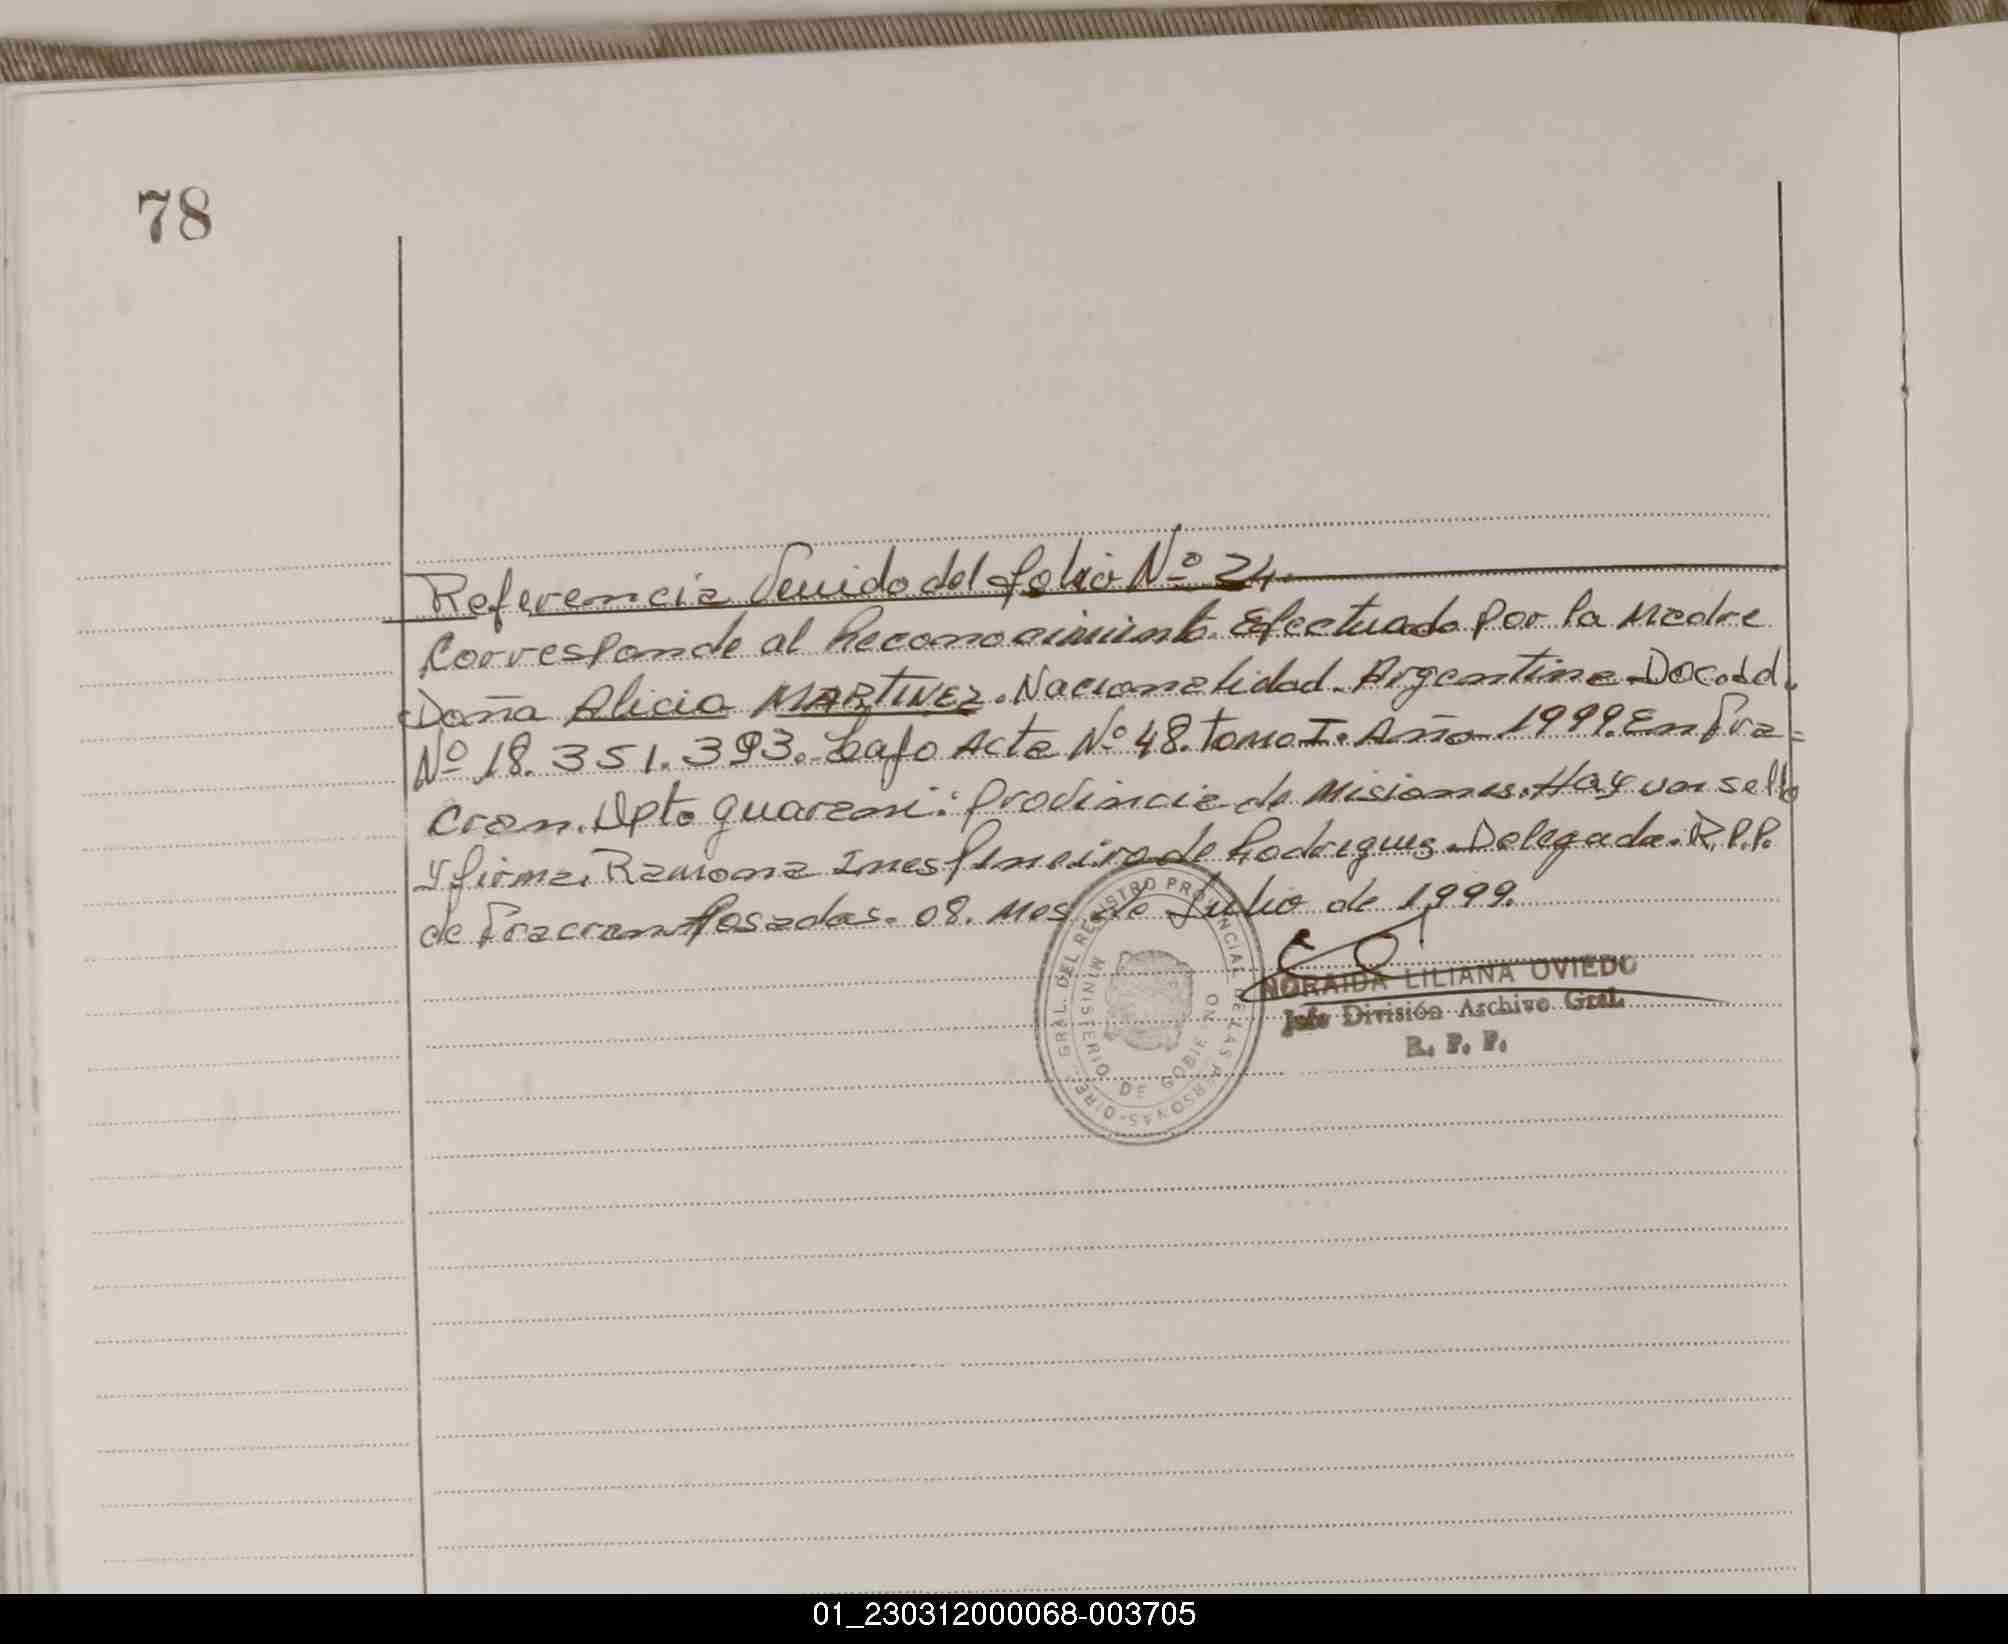 78
Referencia Venido del folio Nº 24.
Corresponde al Reconocimiento. Efectuado por la Madre
Doña Alicia MARTINEZ. Nacionalidad. Argentina. Doc. Id.
Nº 18.351.393. bajo Acta Nº 48. tomo I. Año 1999. En Fra=
cran. Dpto guarani. Provincia de Misiones. Hay un sello
y firma. Ramona Ines Pineiro de Rodriguez. Delegada. R.P.P.
de Fracran. Posadas. 08. Mes de Julio de 1999.
NORAIDA LILIANA OVIEDO
Jefe División Archivo Gral.
R. P. P.
DIRE. GRAL. DEL REGISTRO PROVINCIAL DE LAS PERSONAS
MINISTERIO DE GOBIERNO
01_230312000068-003705